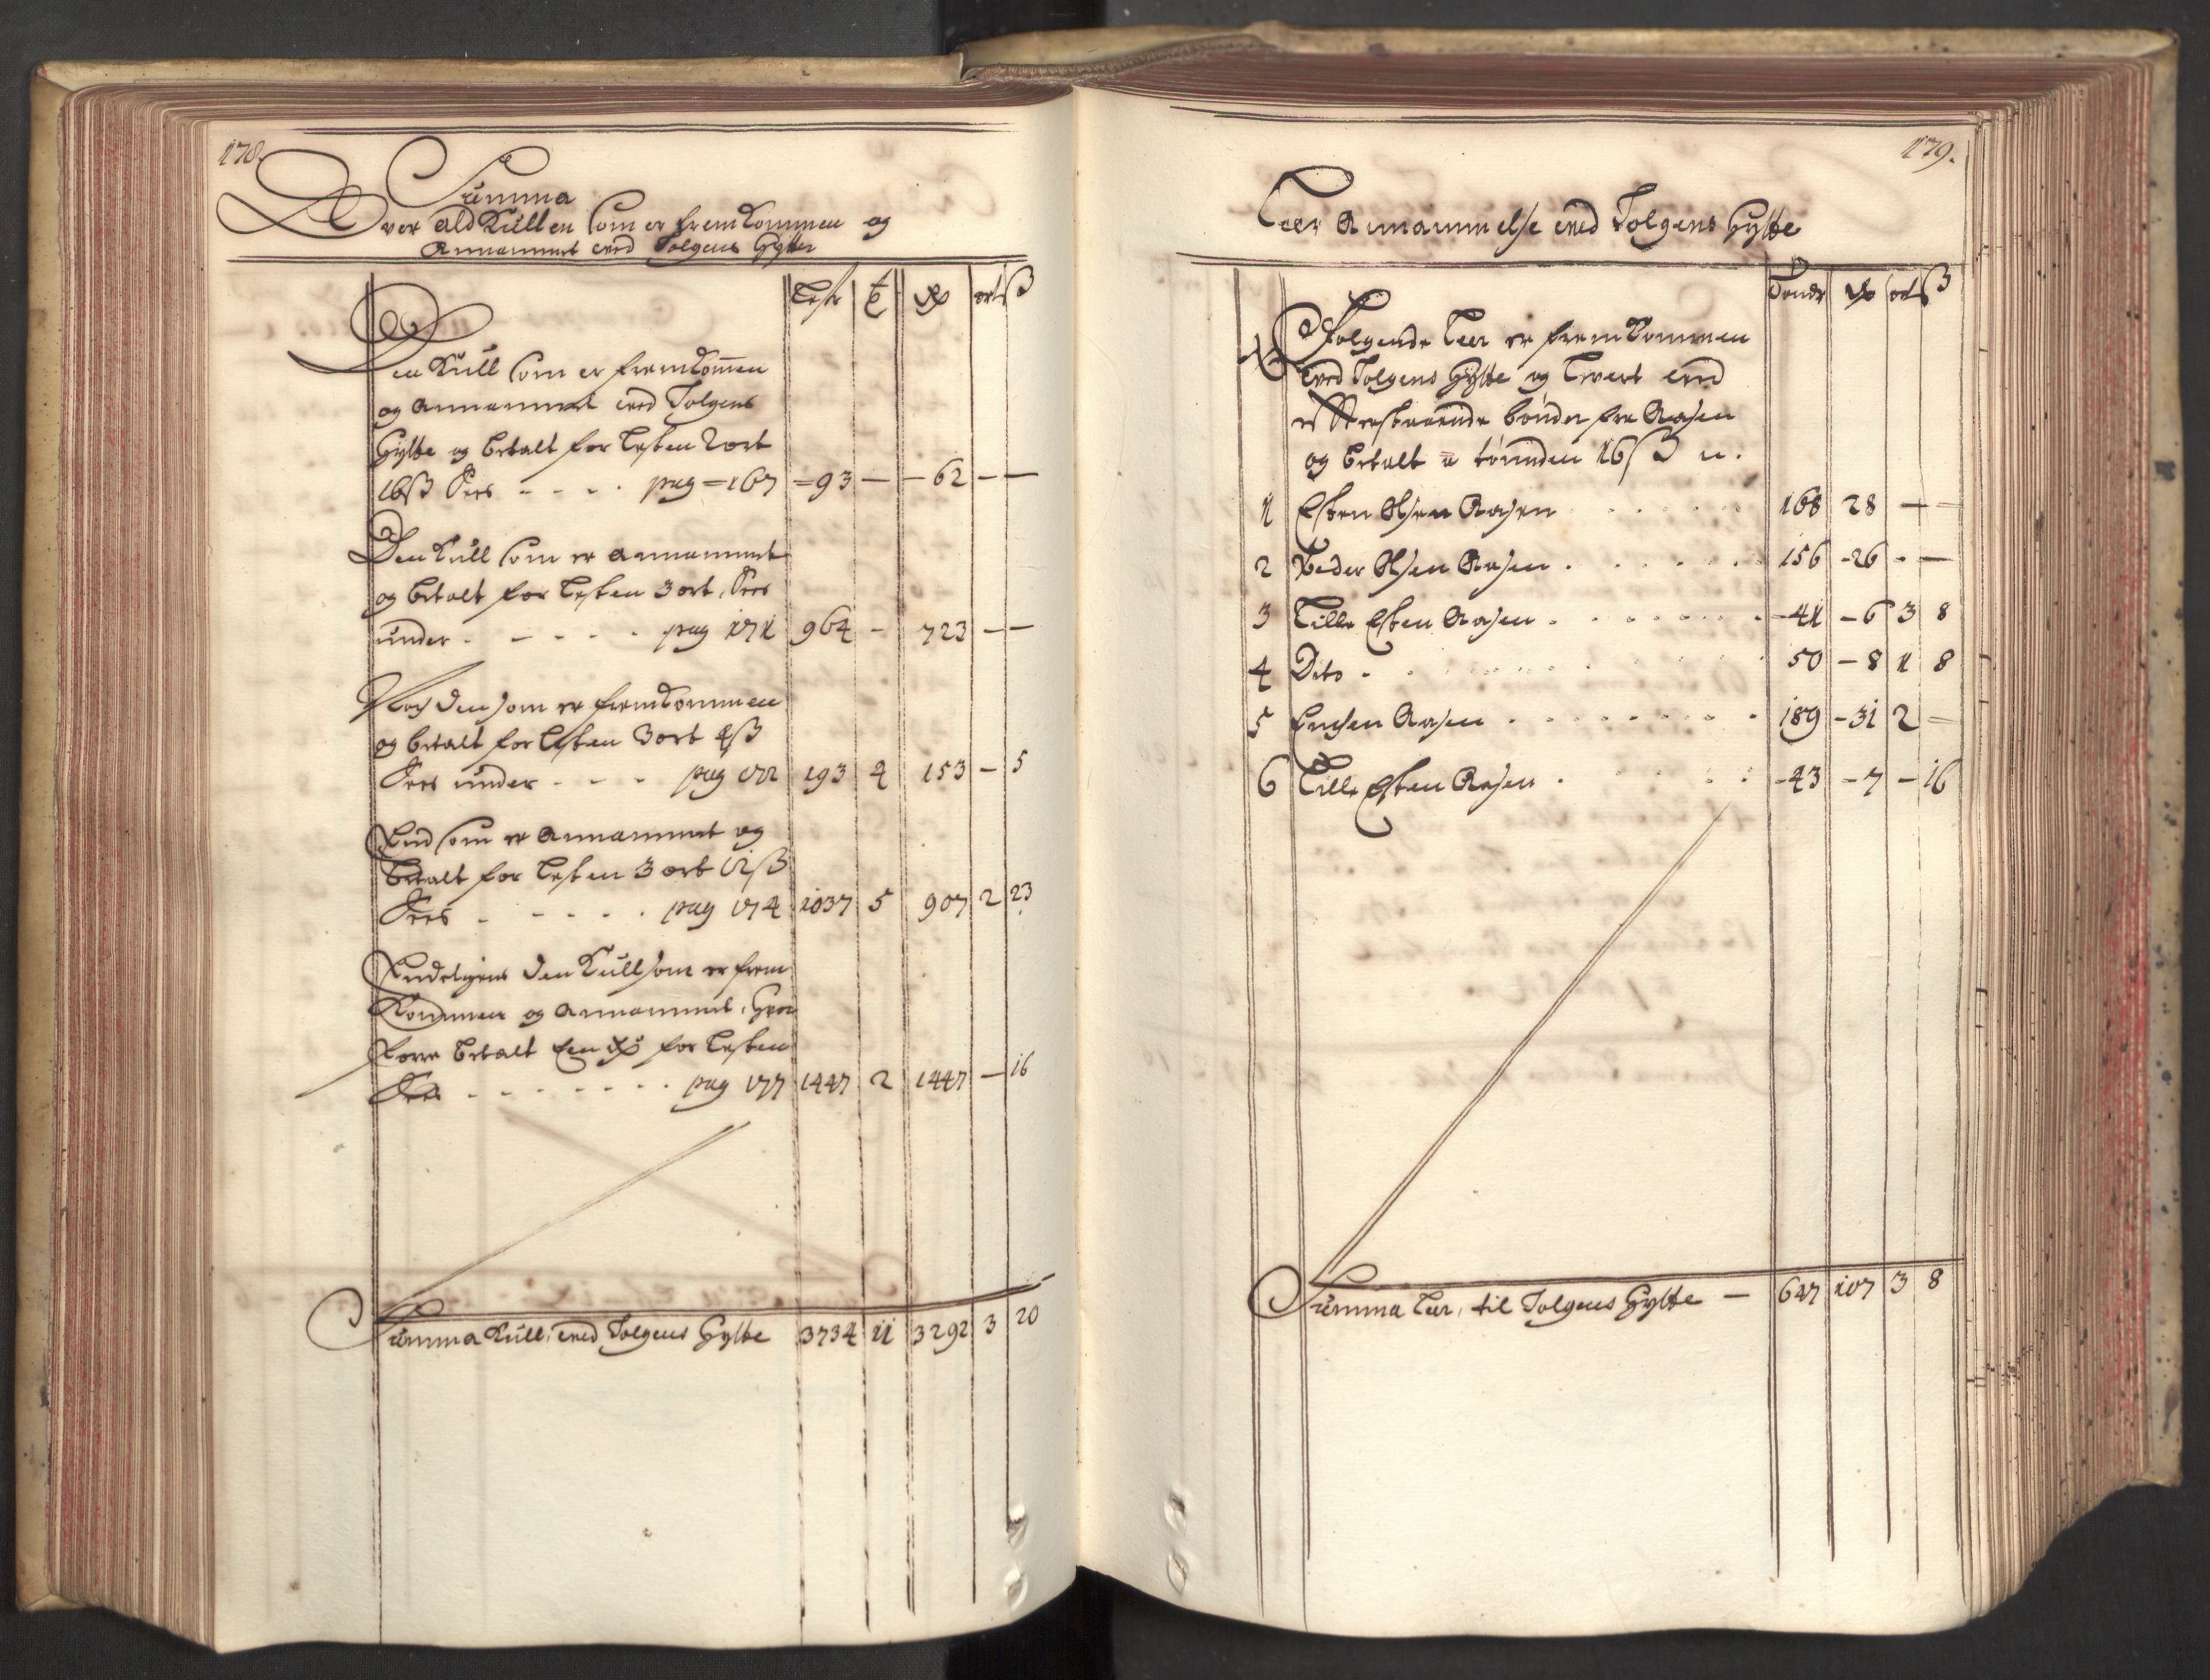 178.
Summa
Over ald Kullen som er fremkommen og
Annammet ved Tolgens Hytte
Lester t rdr ort ß
Den Kull som er fremkommen
og annammet ved Tolgens
Hytte og betalt for Lesten 2 ort
16 ß Sees - - - - pag = 167 = 93 — — 62 — —
Den Kull som er annammet
og betalt for Lesten 3 ort, Sees
under - - - - - pag 171 964 - 723 — —
Noch den som er fremkommen
og betalt for Lesten 3 ort 4 ß
Sees under - - - pag 172 193 4 153 — 5
End som er Annammet og
betalt for Lesten 3 ort 12 ß
Sees - - - - - pag 174 1037 5 907 2 23
Endeligens den Kull som er frem
Kommen og annammet, hvor
forre betalt Een rdr for Lesten
Sees - - - - - - - pag 177 1447 2 1447 — 16
Summa Kull, ved Tolgens Hytte 3734 11 3292 3 20
179.
Teer Annammelse ved Tolgens Hytte
Tønde rdr ort ß
Følgende Teer er fremkommen
ved Tolgens Hytte og
bønder fra Aasen
og betalt a tønnden 16 ß
1 Esten Olsen Aasen 168 28 — —
2 Peder Olsen Aasen 156 - 26 - —
3 Lille Esten Aasen - 41 - 6 3 8
4 Dito - 50 - 8 1 8
5 Aasen 189 - 31 2 —
6 Lille Esten Aasen - 43 - 7 - 16
Summa Teer, til Tolgens Hytte — 647 107 3 8